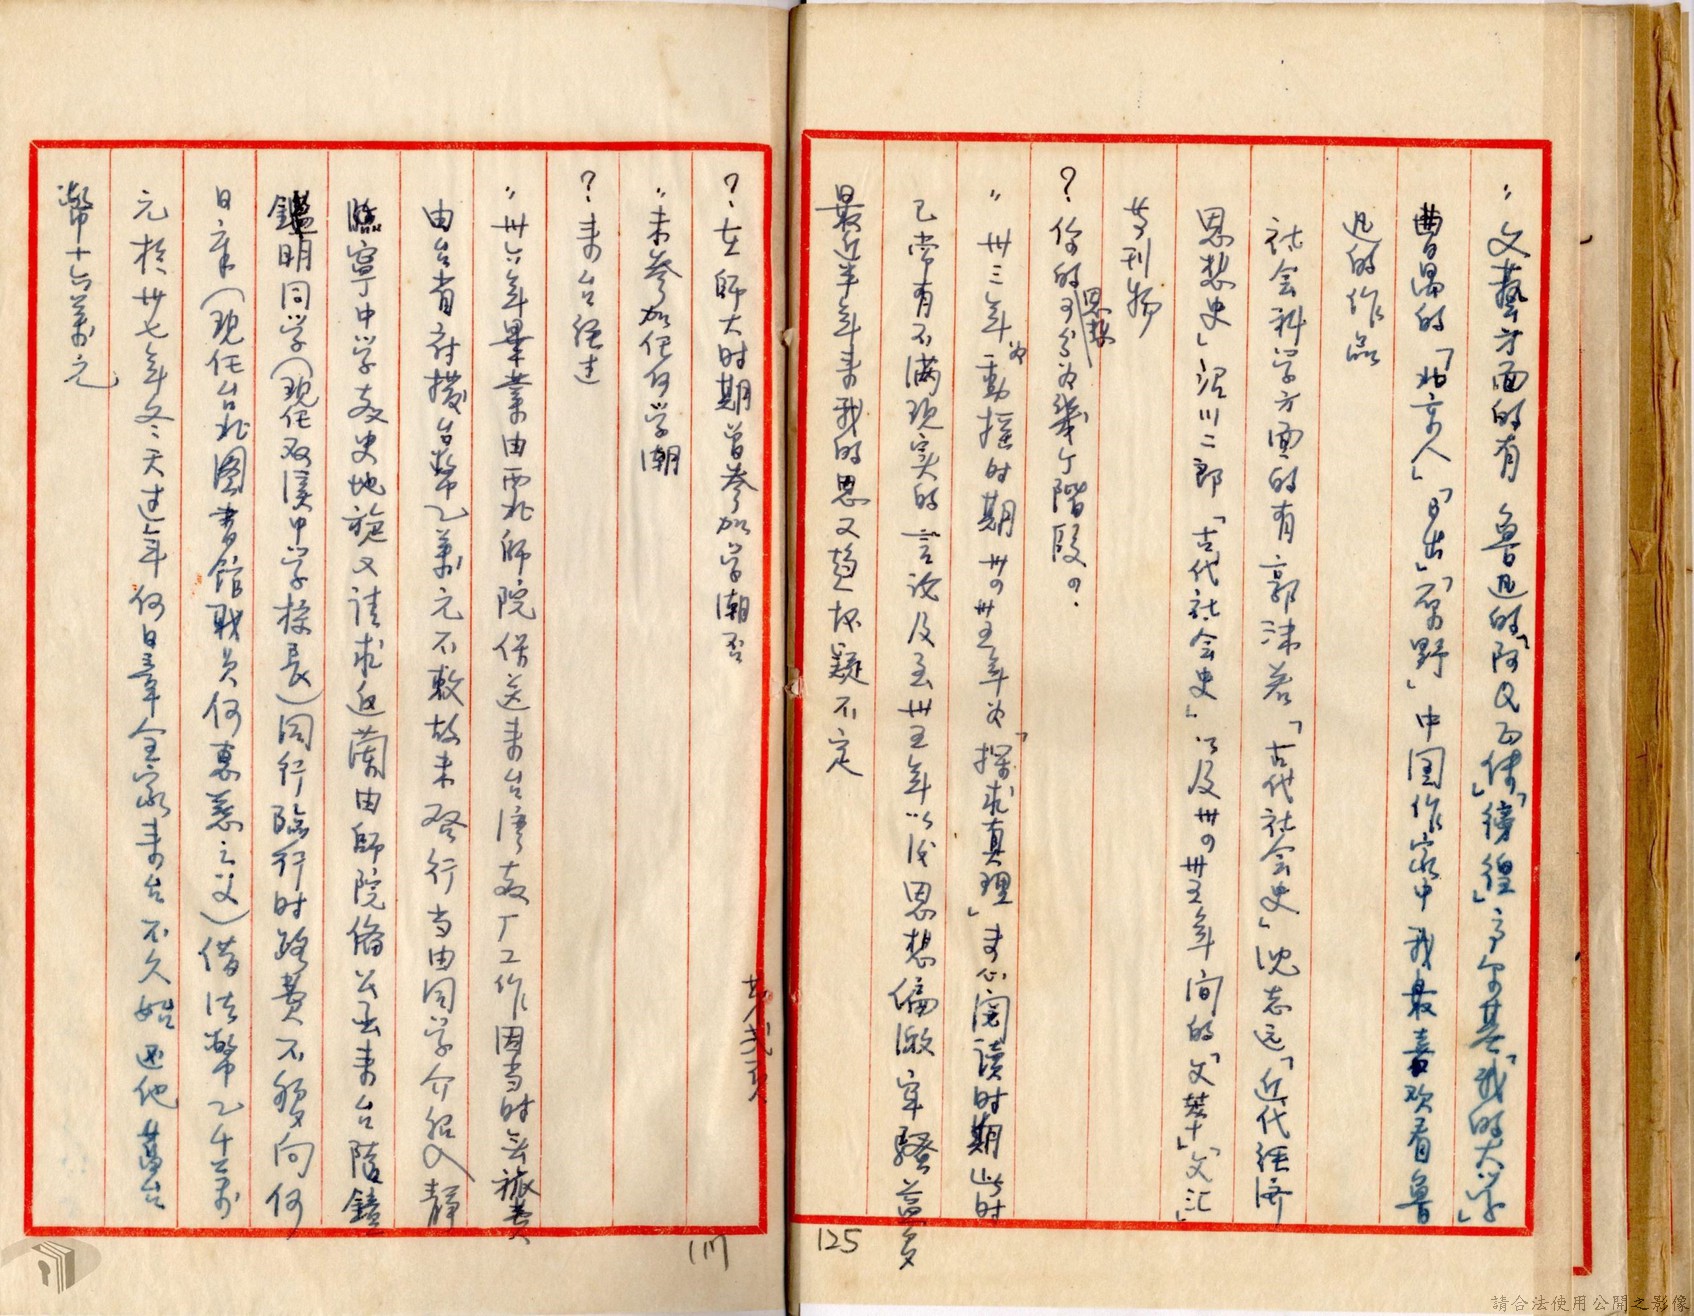 〃文藝方面的有魯迅的「阿Q正傳」「徬徨」高尔基「我的大学」
曹禺的「北京人」「日出」「原野」中国作家中我最喜欢看魯
迅的作品
社会科学方面的有郭沫若「古代社会史」沈志远「近代経済
思想史」沼川二郎「古代社会史」以及卅四卅五年间的「文萃」「文汇」
等刊物
?你的思想可分为幾个階段
〃卅三年为動摇时期卅四卅五年为「探求真理」专心阅读时期此时
已常有不满现实的言论及至卅五年以後思想偏激牢騷益多
最近半年来我的思又趋怀疑不定
125
?在師大时期曾参加学潮否
〃未参加任何学潮
?来台経过
〃卅六年畢業由西北師院保送来台湾教厂工作因当时无旅费
由台省府撥台幣乙萬元不敷故未啓行当由同学介紹入静
寧中学教史地旋又請求返蘭由師院俻公函来台随鏡
鑑明同学(现任双溪中学校長)同行臨行时路费不够向何
日章(现任台北圖書館职员何惠慈之父)借法幣乙千萬
元於卅七年冬天过年何日章全家来台不久始还他舊台
幣十六萬元
共弍頁
117
請合法使用公開之影像